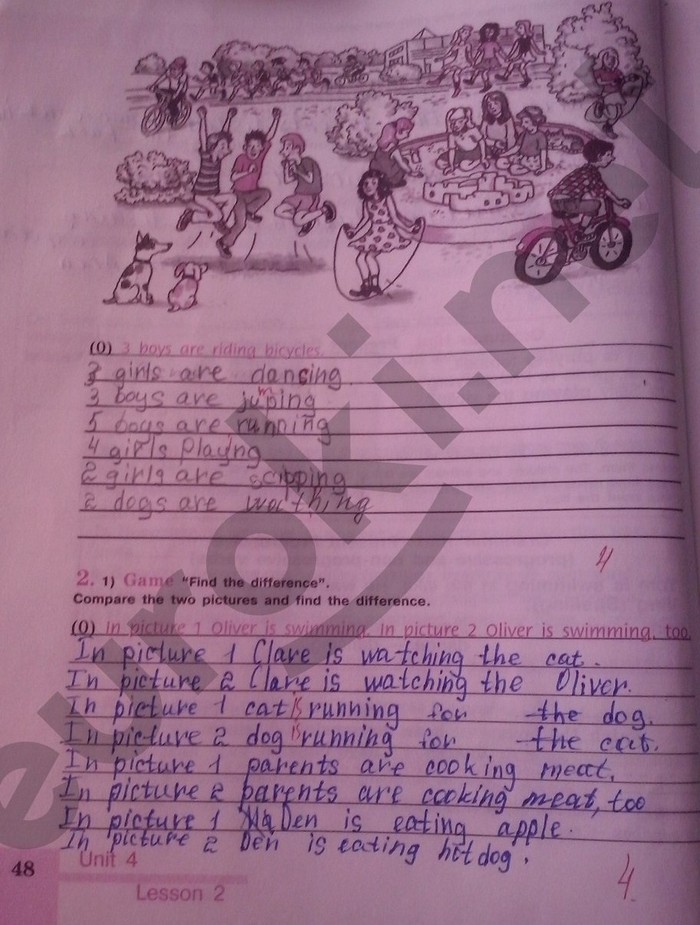 (0) 3 boys are riding bicycles.
3 girls are dancing.
3 boys are jumping
5 boys are running
4 girls playing
2 girls are scipping
2 dogs are
4
2. 1) Game "Find the difference".
Compare the two pictures and find the difference.
(0) In picture 1 Oliver is swimming. In picture 2 Oliver is swimming, too.
In picture 1 Clare is watching the cat.
In picture 2 Clare is watching the Oliver.
In picture 1 cat is running for the dog.
In picture 2 dog is running for the cat.
In picture 1 parents are cooking meat.
In picture 2 parents are cooking meat, too
In picture 1 Den is eating apple.
In picture 2 Den is eating hotdog.
48
Unit 4
Lesson 2
4
euroki.net